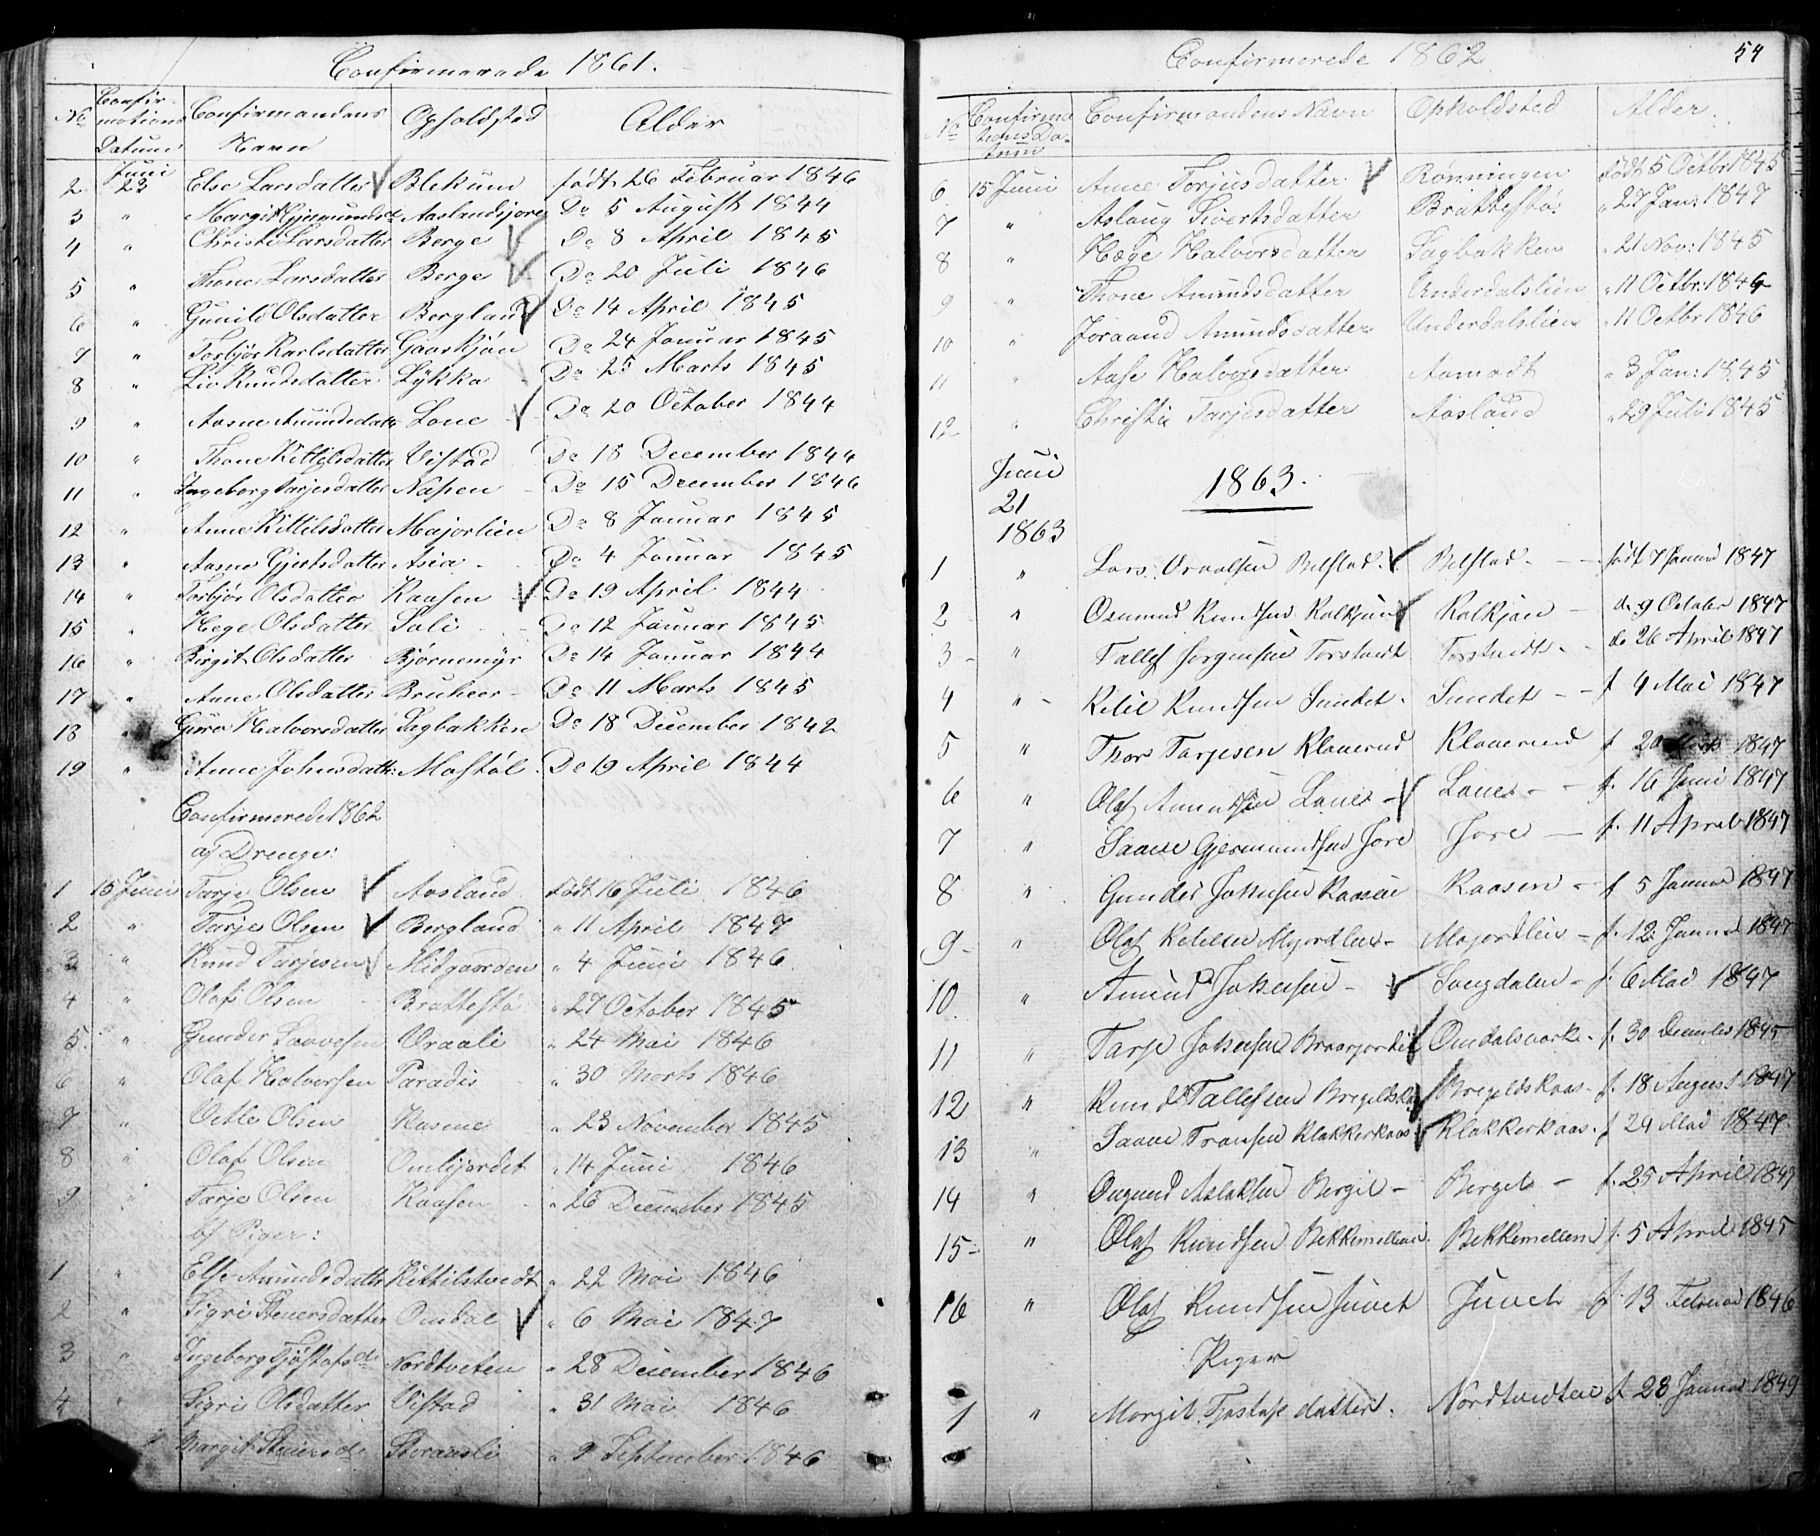 Confirmerede 1861.
No Confirmations Datum Confirmandens Navn Opholdsted Alder
2 Juni 23 Else Larsdatter Blekum født 26 Februar 1846
3 " Margit Gjermundsd. Aaslandsjore Do 5 August 1844
4 " Christi Larsdatter Berge Do 8 April 1845
5 " Thone Larsdatter Berge Do 20 Juli 1846
6 " Gunild Olsdatter Bergland Do 14 April 1845
7 " Torbjør Karlsdatter Gaaskjøn Do 24 Januar 1845
8 " Liv Knudsdatter Lykka Do 25 Marts 1845
9 " Aasne Amundsdatt Lone Do 20 October 1844
10 " Thone Kittilsdatter Vistad Do 18 December 1844
11 " Ingeborg Tarjesdatter Næsen Do 15 December 1846
12 " Anne Kittilsdatter Majorlien Do 8 Januar 1845
13 " Aasne Gjertsdatter Asia Do 4 Januar 1845
14 " Torbjør Olsdatter Kaasen Do 19 April 1844
15 " Hege Olsdatter Sali Do 12 Januar 1845
16 " Birgit Olsdatter Bjørnemyr Do 14 Januar 1844
17 " Anne Olsdatter Bruheer Do 11 Marts 1845
18 " Guro Halvorsdatter Sagbakken Do 18 December 1842
19 " Anne Johnsdatt: Mostøl Do 19 April 1844
Confirmerede 1862
af Drenge:
1 15 Juni Tarje Olsen Aasland født 16 Juli 1846
2 " Tarje Olsen Bergland " 11 April 1847
3 " Knud Tarjesen Midgaarden " 4 Juni 1846
4 " Olaf Olsen Brattestø " 27 October 1845
5 " Gunder Saavesen Vraali " 24 Mai 1846
6 " Olaf Halvorsen Paradis " 30 Marts 1846
7 " Vetle Olsen Husene " 23 November 1845
8 " Olaf Olsen Omlijordet " 14 Juni 1846
9 " Tarje Olsen Kaasen " 26 December 1845
af Piger:
1 " Else Amundsdatter Kittilstvedt " 22 Mai 1846
2 " Sigri Steuersdatter Omdal " 6 Mai 1847
3 " Ingeborg Tjøstofsd. Nordtveten " 28 December 1846
4 " Sigri Olsdatter Vistad " 31 Mai 1846
Margit Steinersd. Storaasli " 9 September 1846
Confirmerede 1862
54
No Confirmationsdatum Confirmandens Navn Opholdsted Alder.
6 15 Juni Anne Torjusdatter Rønningen født 5 Octbr 1845
7 " Aslaug Sivertsdatter Brattestø " 27 Jan: 1847
8 " Hæge Halvorsdatter Sagbakken " 21 Nov: 1845
9 " Thone Amundsdatter Underdalslien " 11 Octbr: 1846
10 " Joraand Amundsdatter Underdalslien " 11 Octbr 1846
11 " Aase Halvorsdatter Aamodt " 3 Jan: 1845
12 " Christi Tarjesdatter Aasland " 29 Juli 1845
Juni
21
1863
1863.
1 " Lars Vraalsen Belstad. Belstad. født 7 Januar 1847
2 " Osmund Knudsen Kalkjøn Kalkjøn do 9 October 1847
3 " Tallef Jorgensen Torstvedt Torstvedt do 26 April 1847
4 " Ketil Knudsen Sundet. Sundet f 4 Mai 1847
5 " Thor Tarjesen Klauerud Klauerud f 20 Marts 1847
6 " Olaf Amundsen Lones Lones f. 16 Juni 1847
7 " Saave Gjermundsen Jore Jore f. 11 April 1847
8 " Gunder Johnsen Kaasen Kaasen f 5 Januar 1847
9 " Olaf Ketilsen Majordlien Majordlien f. 12 Januar 1847
10 " Amund Johnsen Songdalen f. 6 Mai 1847
11 " Tarje Johnsen Omdalsværke. f. 30 December 1845
12 " Knud Tallefsen Bregeldskaas Bregeldskaas f. 18 August 1847
13 " Saave Transen Klakkerkaas Klakkerkaas. f 29 Mai 1847
14 " Ougund Aslaksen Bergit Berget f. 25 April 1847
15 " Olaf Knudsen Bekkemellem. Bekkemellem f. 5 April 1845
16 " Olaf Knudsen Juvet Juvet f. 13 Februar 1846
Piger
1 " Margit Tjostofs datter. Nordtvedten f 23 Januar 1849